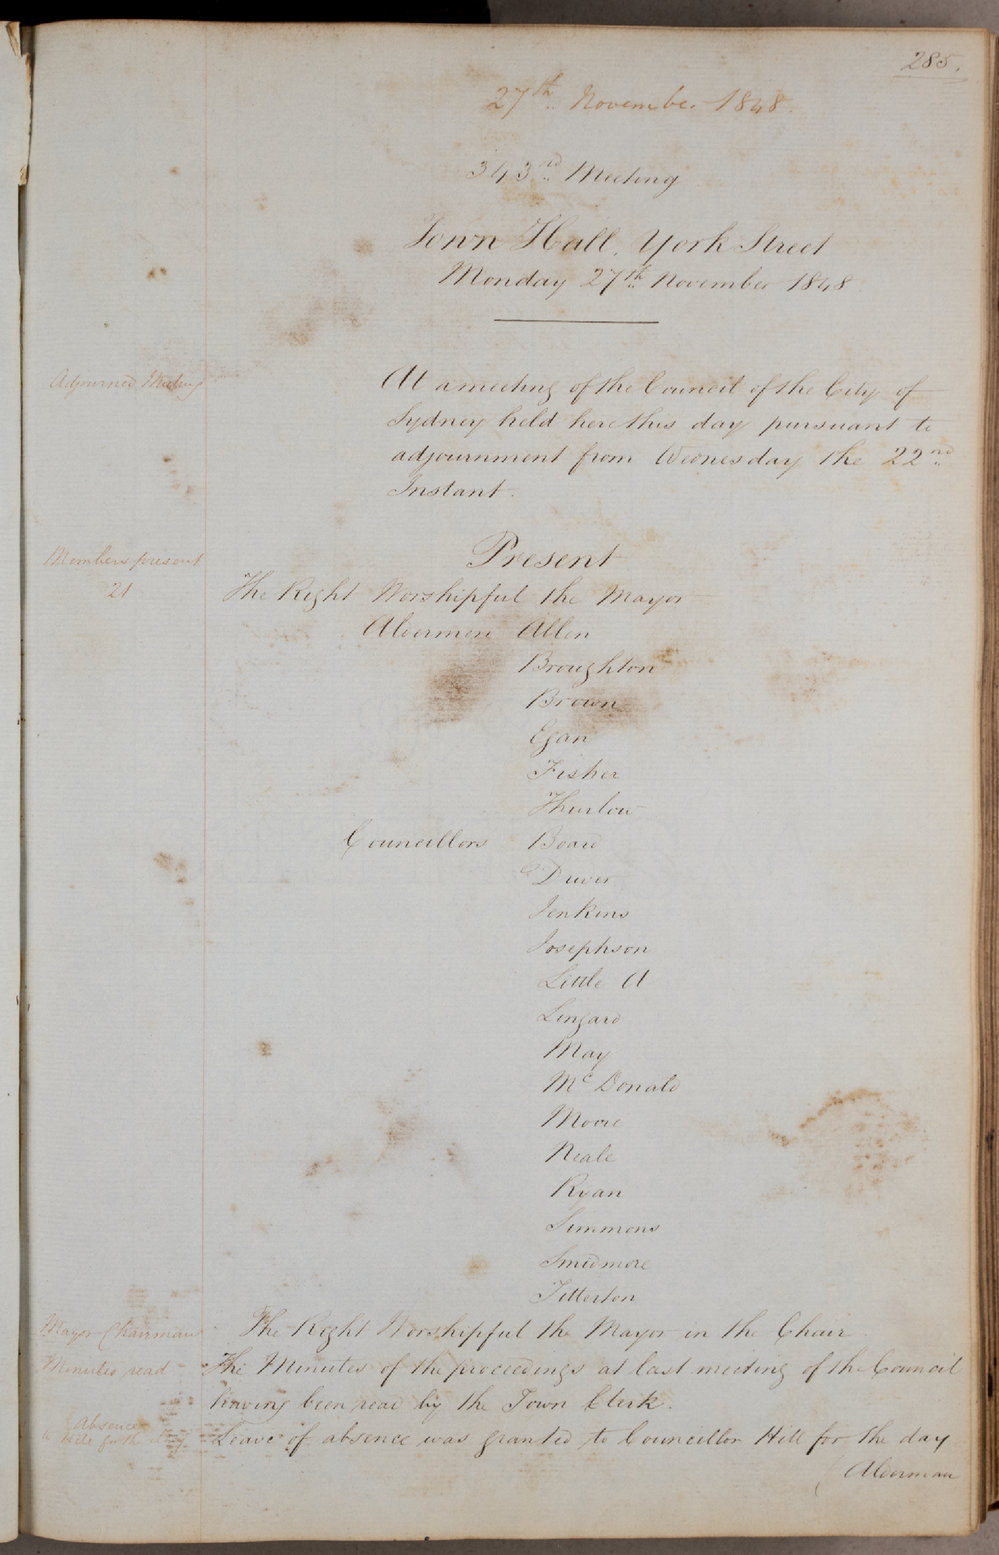 285.
27th November 1848.
343rd Meeting
Town Hall, York Street
Monday 27th November 1848
Adjourned Meeting
At a meeting of the Council of the City of
Sydney held here this day pursuant to
adjournment from Wednesday the 22nd
Instant.
Members present
21
Present
The Right Worshipful the Mayor
Aldermen Allen
Broughton
Brown
Egan
Fisher
Thurlow
Councillors Board
Driver
Jenkins
Josephson
Little A
Lingard
May
McDonald
Moore
Neale
Ryan
Simmons
Smidmore
Titterton
Mayor Chairman
The Right Worshipful the Mayor in the Chair.
Minutes read
The Minutes of the proceedings at last meeting of the Council
having been read by the Town Clerk.
Absence
to Hill for the day
Leave of absence was granted to Councillor Hill for the day
(Alderman